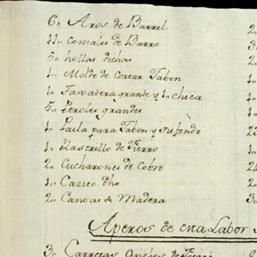 6,, Aros de Barril
11,, comales de Barro
5,, hollas dichas
1,, Molde de cortar Jabon
1,, Tayadera grande y 1,, chica
5,, Peroles grandes
1,, Paila para Jabon y su fondo
1,, Rastrillo de Fierro
2,, Cucharones de Cobre
1,, Cazito dho
2,, Canoas de Madera
Aperos de esta Labor
3,, Carretas de Fierro